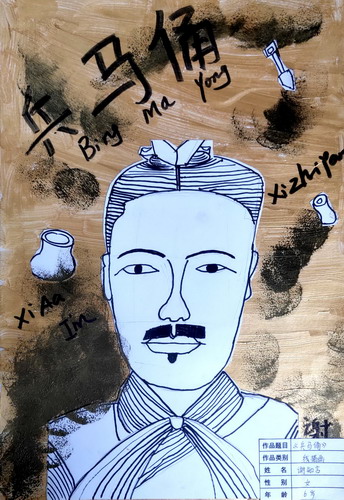 兵马俑
Bing Ma Yong
xizhiyan
xiAa
Jm
作品题目 《兵马俑》
作品类别 线描画
姓 名
性 别 女
年 龄 6岁